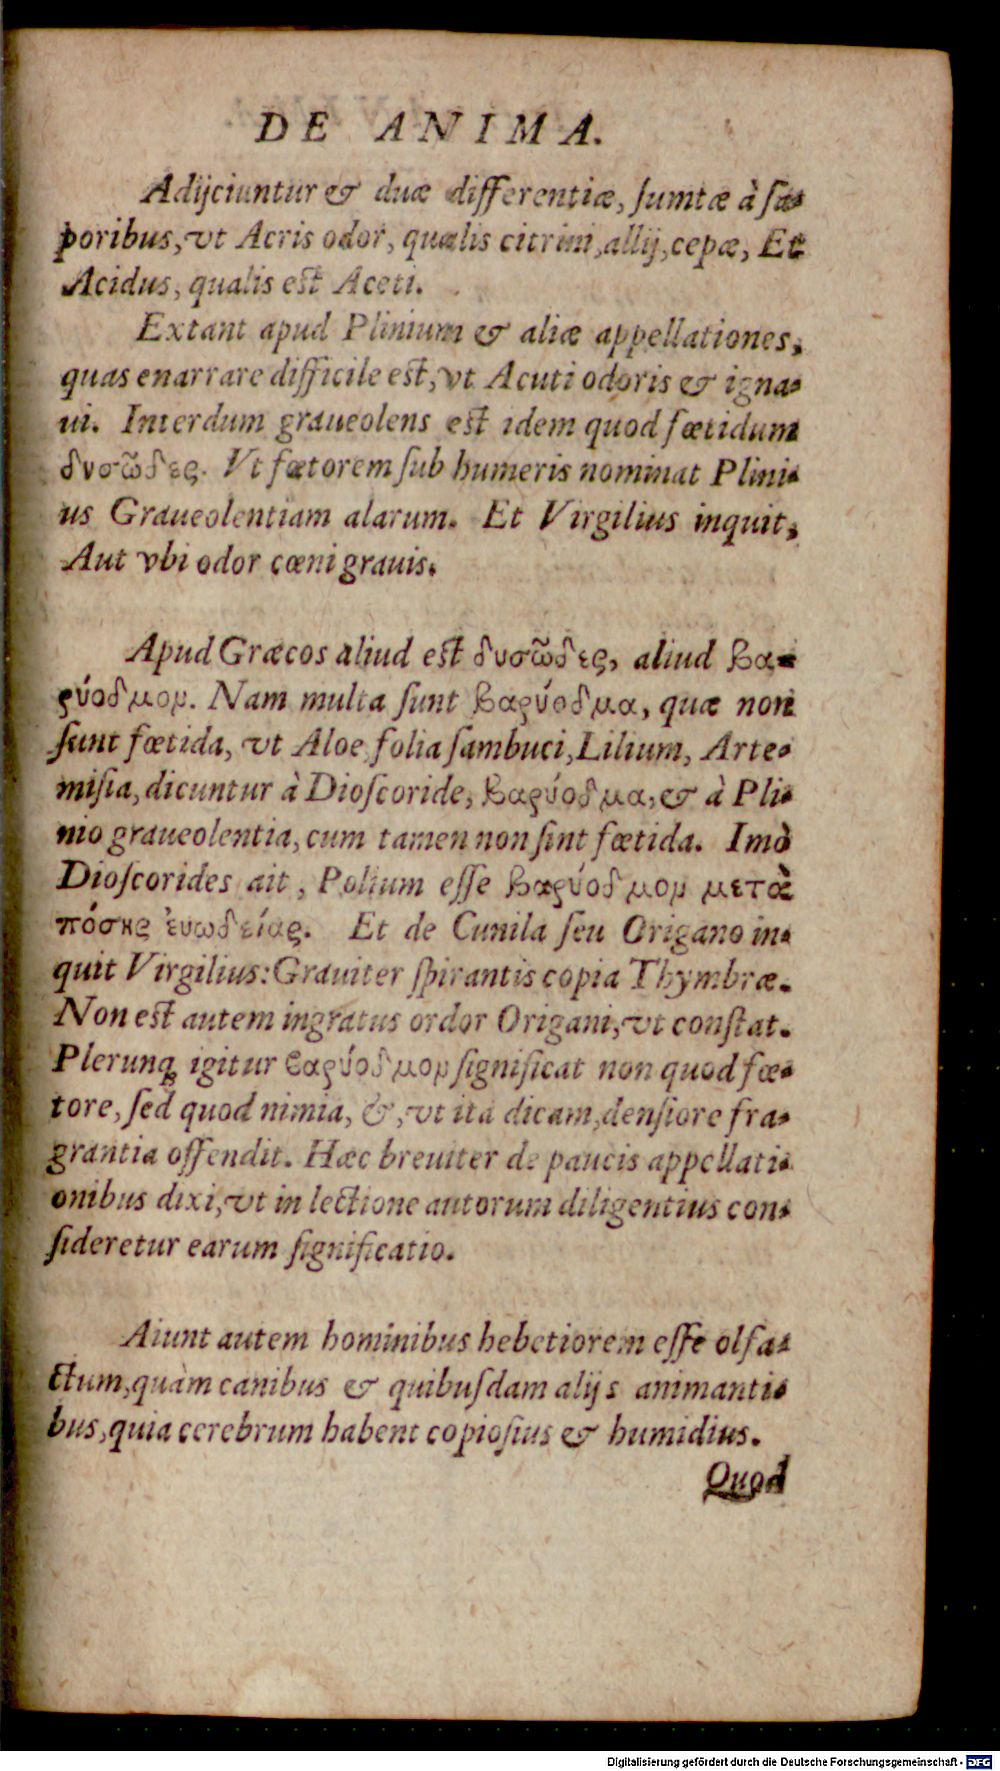 DE ANIMA.
Adijciuntur & duæ differentiæ, ſumtæ à ſa-
poribus, vt Acris odor, qualis citrini, allij, cepæ, Et
Acidus, qualis est Aceti.
Extant apud Plinium & aliæ appellationes,
quas enarrare difficile est, vt Acuti odoris & igna-
ui. Interdum graueolens est idem quod fœtidum
δυσῶδες. Vt fœtorem ſub humeris nominat Plini-
us Graueolentiam alarum. Et Virgilius inquit,
Aut vbi odor cœni grauis.
Apud Græcos aliud est δυσῶδες, aliud βα-
ρύοδμον. Nam multa ſunt βαρύοδμα, quæ non
ſunt fœtida, vt Aloe, folia ſambuci, Lilium, Arte-
miſia, dicuntur à Dioſcoride, βαρύοδμα, & à Pli-
nio graueolentia, cum tamen non ſint fœtida. Imò
Dioſcorides ait, Polium eſſe βαρύοδμον μετὰ
πόσης ἐυωδείας. Et de Cunila ſeu Origano in-
quit Virgilius: Grauiter ſpirantis copia Thymbræ.
Non est autem ingratus ordor Origani, vt conſtat.
Plerunq; igitur βαρύοδμον ſignificat non quod fœ-
tore, ſed quod nimia, &, vt ita dicam, denſiore fra-
grantia offendit. Hæc breuiter de paucis appellati-
onibus dixi, vt in lectione autorum diligentius con-
ſideretur earum ſignificatio.
Aiunt autem hominibus hebetiorem eſſe olfa-
ctum, quàm canibus & quibuſdam alijs animanti-
bus, quia cerebrum habent copioſius & humidius.
Quod
Digitalisierung gefördert durch die Deutsche Forschungsgemeinschaft - DFG